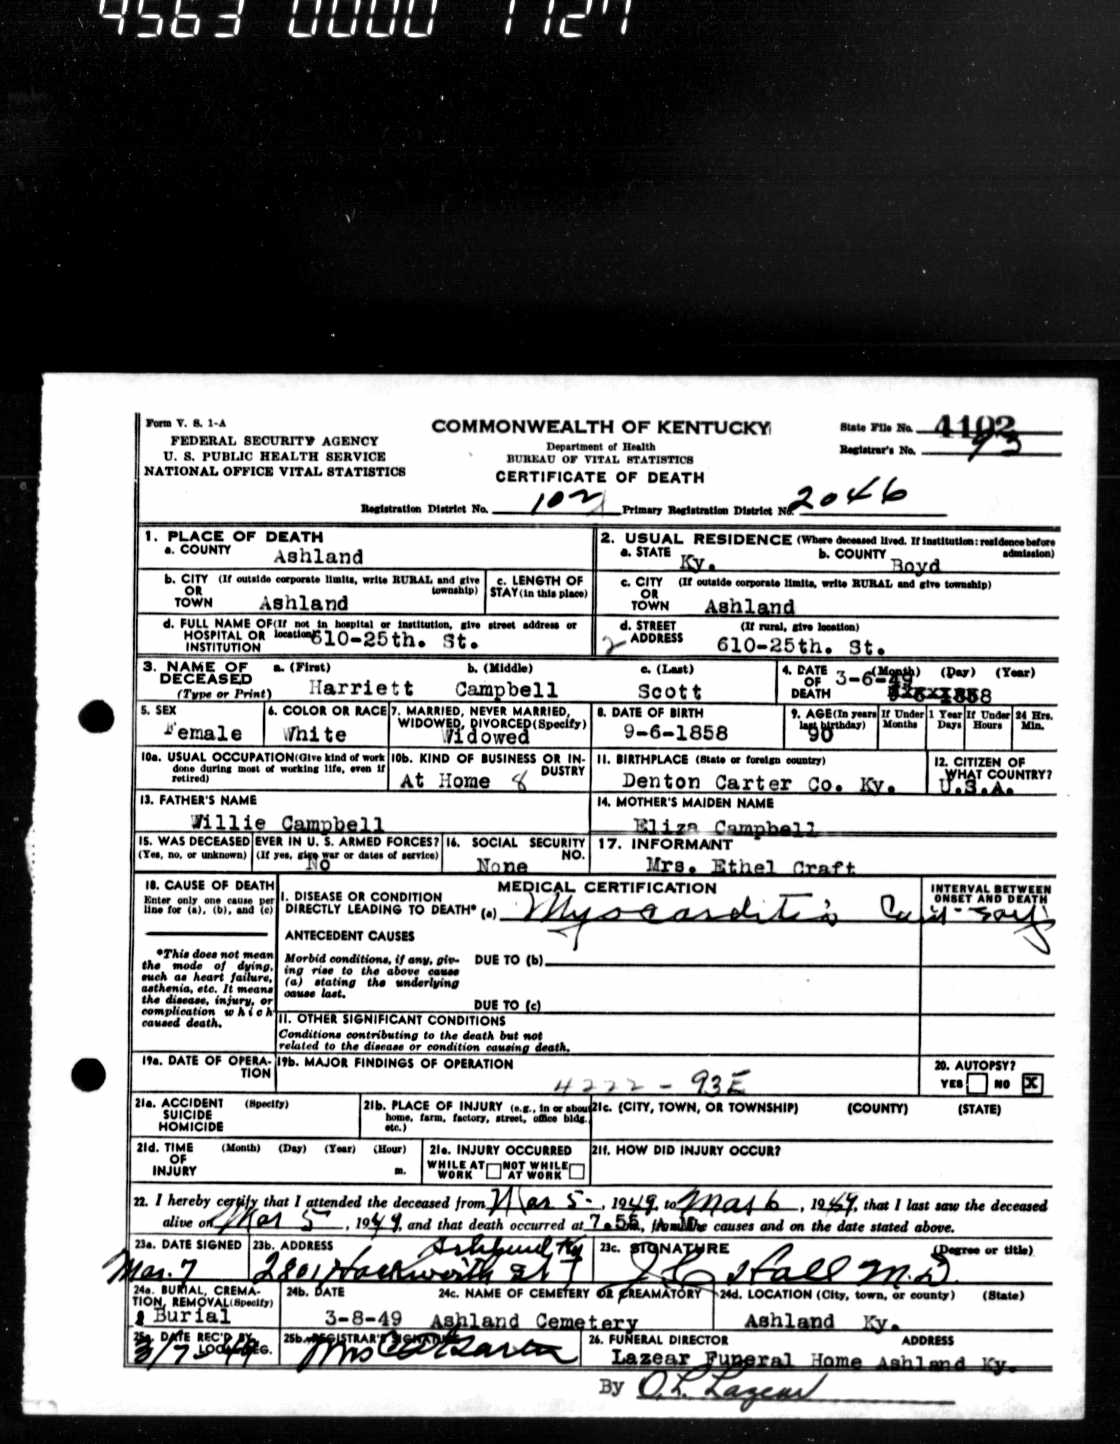 4563 0000 1127
Form V. S. 1-A
FEDERAL SECURITY AGENCY
U. S. PUBLIC HEALTH SERVICE
NATIONAL OFFICE VITAL STATISTICS
COMMONWEALTH OF KENTUCKY
Department of Health
BUREAU OF VITAL STATISTICS
CERTIFICATE OF DEATH
State File No. 4102
Registrar's No. 93
Registration District No. 102 Primary Registration District No. 2046
1. PLACE OF DEATH
a. COUNTY Ashland
2. USUAL RESIDENCE (Where deceased lived. If institution: residence before admission)
a. STATE Ky. b. COUNTY Boyd
b. CITY (If outside corporate limits, write RURAL and give township)
OR
TOWN Ashland
c. LENGTH OF STAY (in this place)
c. CITY (If outside corporate limits, write RURAL and give township)
OR
TOWN Ashland
d. FULL NAME OF (If not in hospital or institution, give street address or location)
HOSPITAL OR INSTITUTION 610-25th. St.
d. STREET ADDRESS (If rural, give location)
2 610-25th. St.
3. NAME OF DECEASED (Type or Print)
a. (First) Harriett b. (Middle) Campbell c. (Last) Scott
4. DATE OF DEATH (Month) (Day) (Year)
3-6-49
5. SEX Female
6. COLOR OR RACE White
7. MARRIED, NEVER MARRIED, WIDOWED, DIVORCED (Specify) Widowed
8. DATE OF BIRTH 9-6-1858
9. AGE (In years last birthday) 90
If Under 1 Year Months Days
If Under 24 Hrs. Hours Min.
10a. USUAL OCCUPATION (Give kind of work done during most of working life, even if retired)
10b. KIND OF BUSINESS OR INDUSTRY At Home 8
11. BIRTHPLACE (State or foreign country) Denton Carter Co. Ky.
12. CITIZEN OF WHAT COUNTRY? U.S.A.
13. FATHER'S NAME Willie Campbell
14. MOTHER'S MAIDEN NAME Eliza Campbell
15. WAS DECEASED EVER IN U. S. ARMED FORCES?
(Yes, no, or unknown) (If yes, give war or dates of service) No
16. SOCIAL SECURITY NO. None
17. INFORMANT Mrs. Ethel Craft
18. CAUSE OF DEATH
Enter only one cause per line for (a), (b), and (c)
MEDICAL CERTIFICATION
INTERVAL BETWEEN ONSET AND DEATH
I. DISEASE OR CONDITION
DIRECTLY LEADING TO DEATH* (a) Myocarditis
*This does not mean the mode of dying, such as heart failure, asthenia, etc. It means the disease, injury, or complication which caused death.
ANTECEDENT CAUSES
Morbid conditions, if any, giving rise to the above cause (a) stating the underlying cause last.
DUE TO (b)
DUE TO (c)
II. OTHER SIGNIFICANT CONDITIONS
Conditions contributing to the death but not related to the disease or condition causing death.
19a. DATE OF OPERATION
19b. MAJOR FINDINGS OF OPERATION
4222 - 93E
20. AUTOPSY?
YES NO X
21a. ACCIDENT (Specify)
SUICIDE
HOMICIDE
21b. PLACE OF INJURY (e.g., in or about home, farm, factory, street, office bldg., etc.)
21c. (CITY, TOWN, OR TOWNSHIP) (COUNTY) (STATE)
21d. TIME OF INJURY (Month) (Day) (Year) (Hour) m.
21e. INJURY OCCURRED
WHILE AT WORK NOT WHILE AT WORK
21f. HOW DID INJURY OCCUR?
22. I hereby certify that I attended the deceased from Mar 5-, 1949, to Mar 6, 1949, that I last saw the deceased
alive on Mar 5, 1949, and that death occurred at 7.55 m., from the causes and on the date stated above.
23a. DATE SIGNED Mar. 7
23b. ADDRESS Ashland Ky
2801 Hackworth St
23c. SIGNATURE (Degree or title)
J C Hall M.D.
24a. BURIAL, CREMATION, REMOVAL (Specify) Burial
24b. DATE 3-8-49
24c. NAME OF CEMETERY OR CREAMATORY Ashland Cemetery
24d. LOCATION (City, town, or county) (State) Ashland Ky.
25a. DATE REC'D BY LOCAL REG. 3/7-49
25b. REGISTRAR'S SIGNATURE
26. FUNERAL DIRECTOR ADDRESS
Lazear Funeral Home Ashland Ky.
By O. L. Lazear